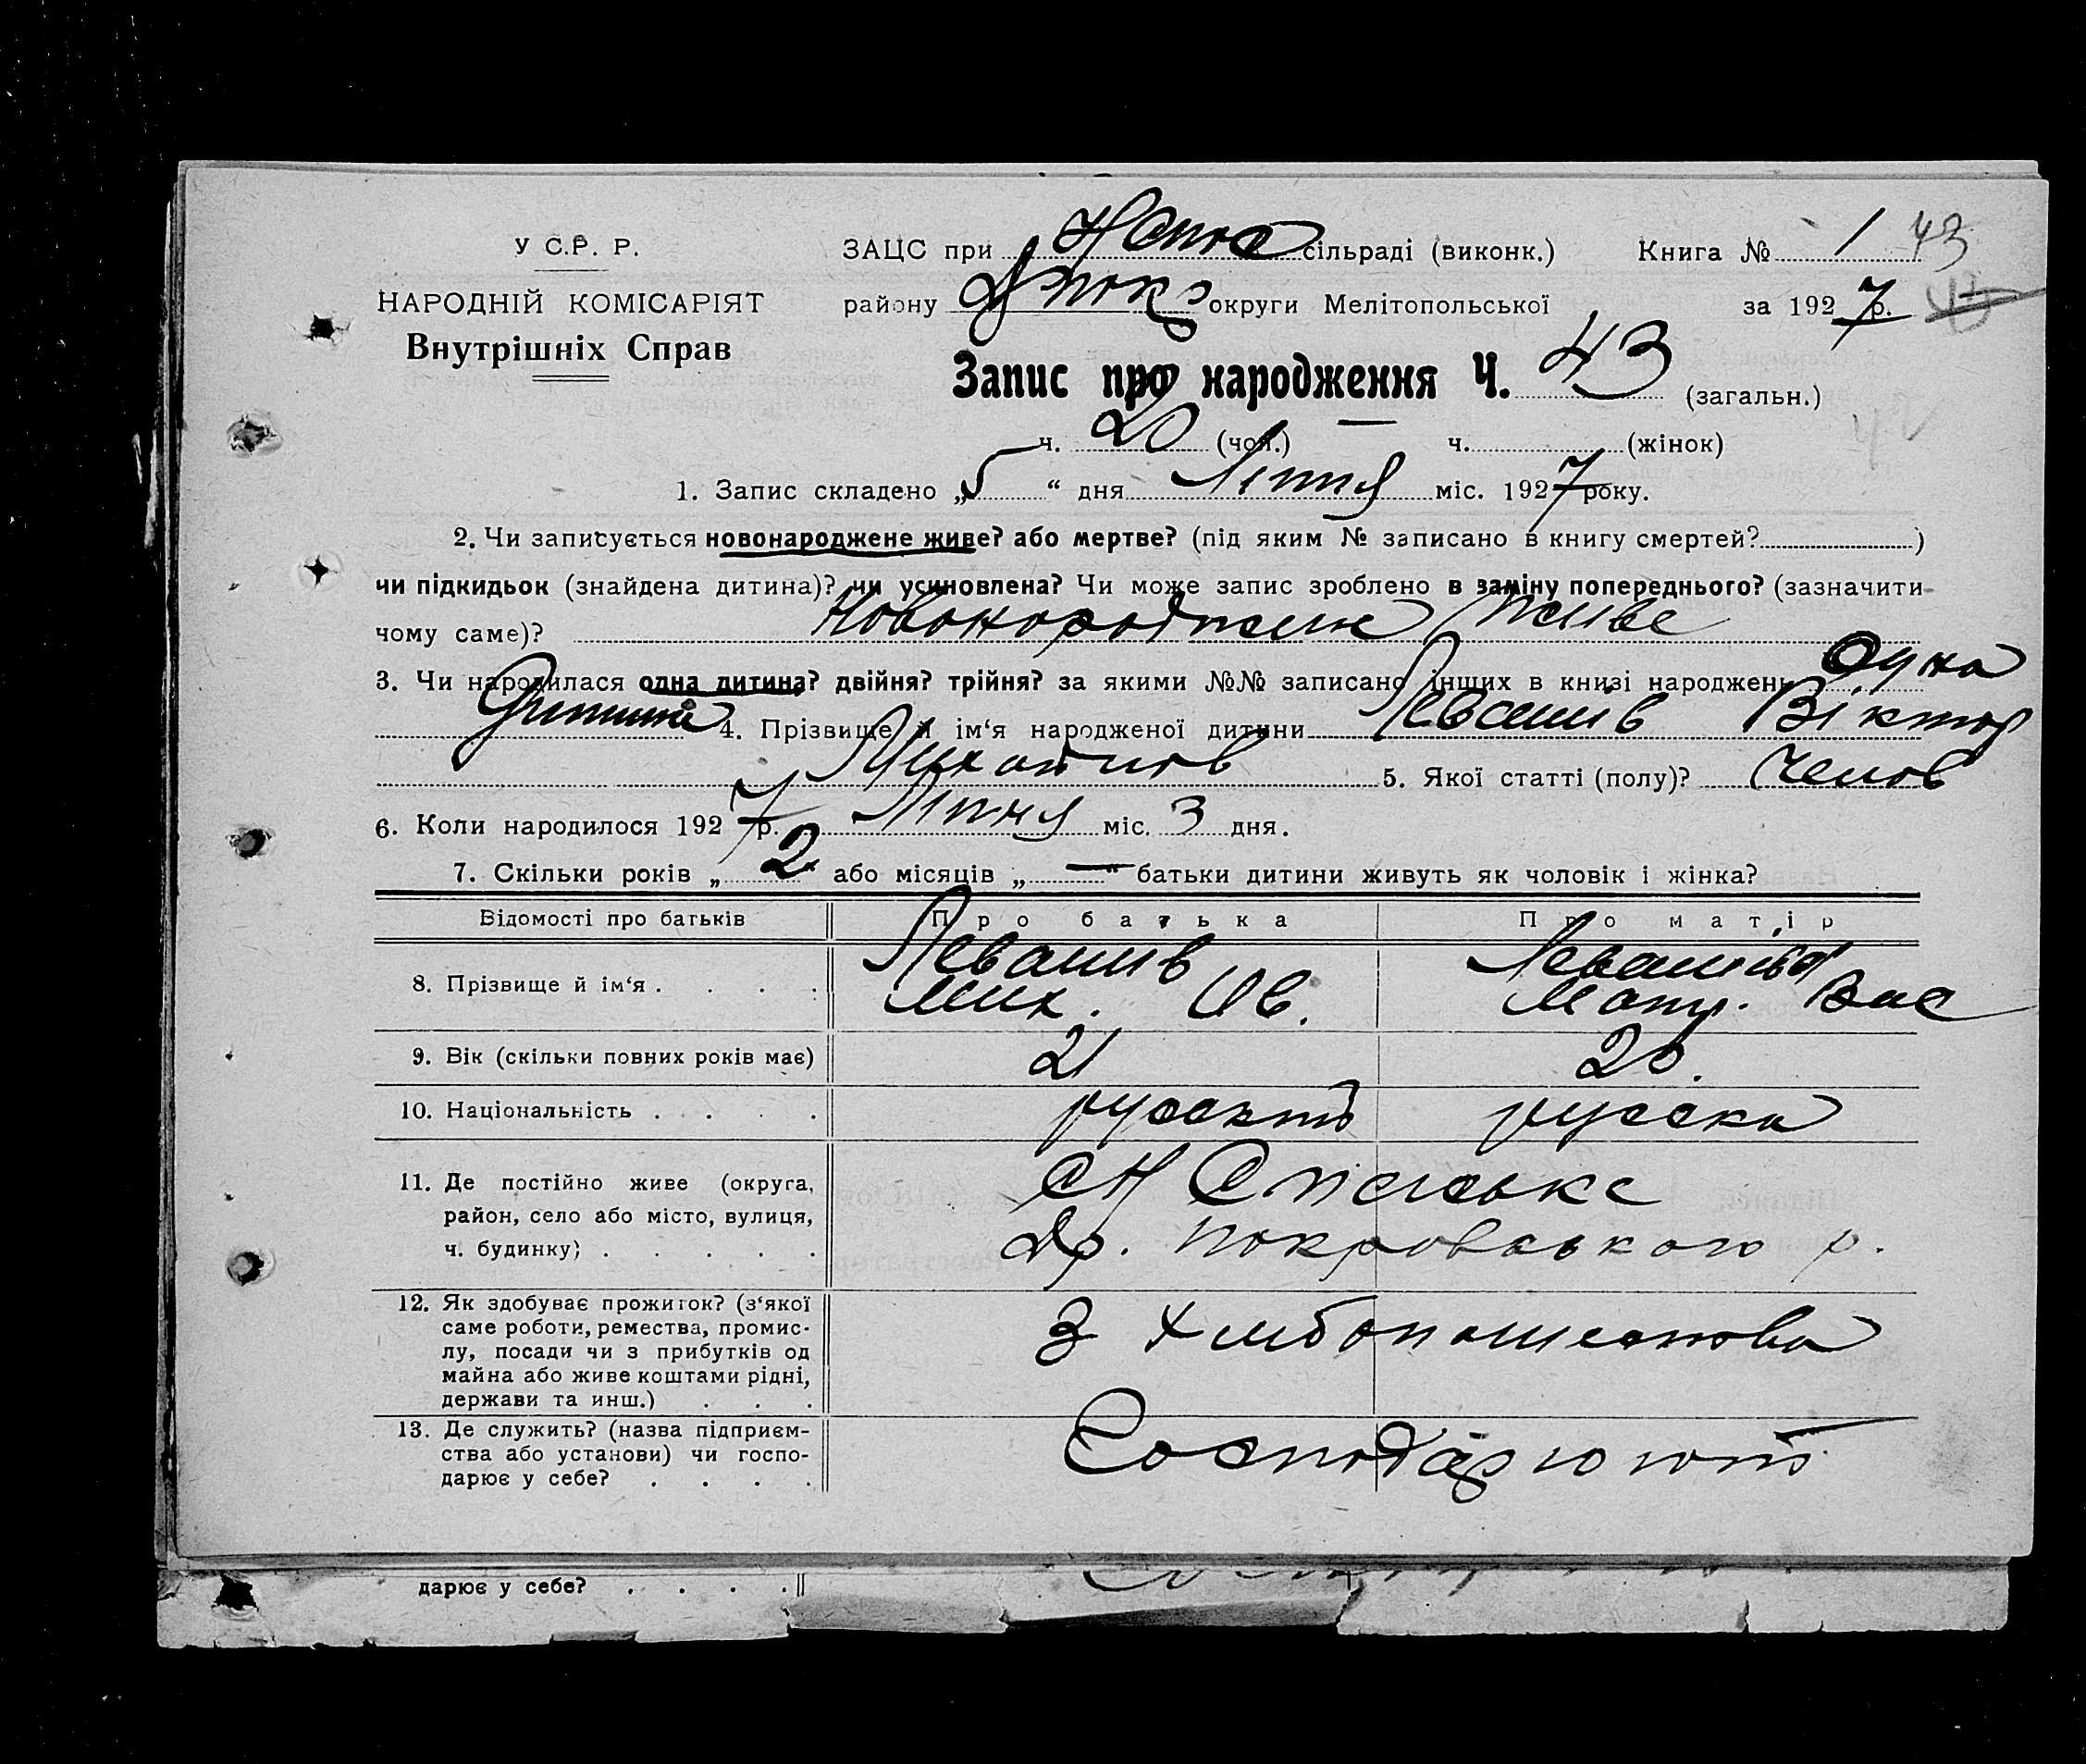 У С.Р. Р.
НАРОДНІЙ КОМІСАРІЯТ
Внутрішніх Справ
ЗАЦС при Нспас сільраді (виконк.)
району Дпокр округи Мелітопольської
Книга № 1 43
за 1927 р.
Запис про народження Ч. 43 (загальн.)
ч. 20 (чол.) — ч. (жінок)
1. Запис складено „5“ дня Ліпня міс. 1927 року.
2. Чи записується новонароджене живе? або мертве? (під яким № записано в книгу смертей? )
чи підкидьок (знайдена дитина)? чи усиновлена? Чи може запис зроблено в заміну попереднього? (зазначити
чому саме)? Новонороджене живе
3. Чи народилася одна дитина? двійня? трійня? за якими №№ записано інших в книзі народжень Одна
дитина 4. Прізвище й ім‘я народженої дитини Левашів Віктор
5. Якої статті (полу)? Челов
6. Коли народилося 1927 р. Ліпня міс. 3 дня.
7. Скільки років „2“ або місяців „—“ батьки дитини живуть як чоловік і жінка?
Відомості про батьків Про батька Про матір
8. Прізвище й ім‘я . . . . Левашів Левашова
Мих. Ів. Матр. Вас
9. Вік (скільки повних років має) 21 20.
10. Національність . . . . русский русска
11. Де постійно живе (округа, с Н Спаське
район, село або місто, вулиця,
ч. будинку) . . . . . Др. Покровського р.
12. Як здобуває прожиток? (з‘якої
саме роботи, ремества, промис-
лу, посади чи з прибутків од
майна або живе коштами рідні,
держави та инш.) . . .
З Хлибопашества
13. Де служить? (назва підприєм-
ства або установи) чи госпо-
дарює у себе? . . . .
Господарюють
дарює у себе? . . . .